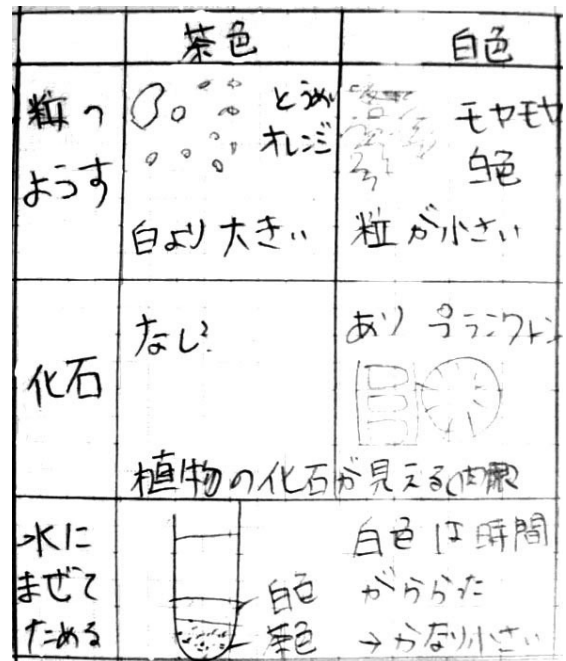 茶色
白色
粒の
ようす
とうめい
オレンジ
白より大きい
モヤモヤ
白色
粒が小さい
化石
なし?
あり プランクトン
植物の化石が見える(肉眼)
水に
まぜて
ためる
白色
茶色
白色は時間
がかかった
→かなり小さい